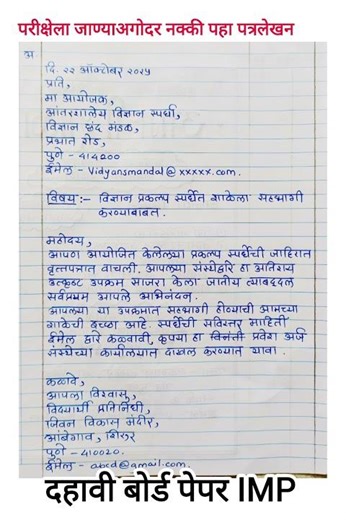 परीक्षेला जाण्याअगोदर नक्की पहा पत्रलेखन
अ.
दि. २२ ऑक्टोबर २०२५
प्रति,
मा आयोजक,
आंतरशालेय विज्ञान स्पर्धा,
विज्ञान छंद मंडळ,
प्रभात रोड,
पुणे - 414200
ईमेल - Vidyansmandal@xxxxx.com.
विषय:- विज्ञान प्रकल्प स्पर्धेत शाळेला सहभागी
करण्याबाबत.
महोदय,
आपण आयोजित केलेल्या प्रकल्प स्पर्धेची जाहिरात
वृत्तपत्रात वाचली. आपल्या संस्थेद्वारे हा अतिशय
उत्कृष्ट उपक्रम साजरा केला जातोय त्याबद्दल
सर्वप्रथम आपले अभिनंदन.
आपल्या या उपक्रमात सहभागी होण्याची आमच्या
शाळेची इच्छा आहे. स्पर्धेची सविस्तर माहिती
ईमेल द्वारे कळवावी, कृपया हा विनंती प्रवेश अर्ज
संस्थेच्या कार्यालयात दाखल करण्यात यावा.
कळावे,
आपला विश्वासू,
विद्यार्थी प्रतिनिधी,
जिवन विकास मंदीर,
आंबेगाव, शिरूर
पुणे - 410020.
ईमेल - abcd@gmail.com.
दहावी बोर्ड पेपर IMP